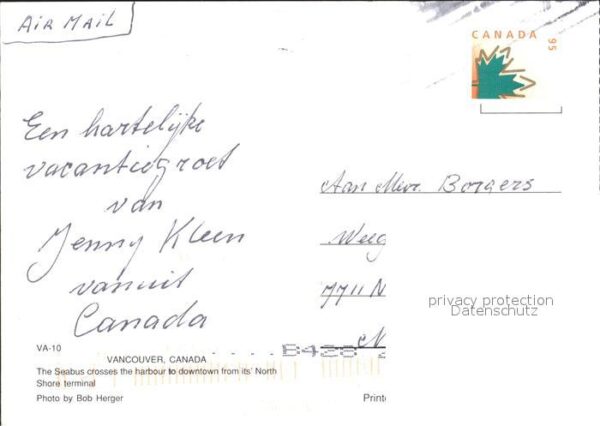 AIR MAIL
CANADA 95
Een hartelijke
vacantiegroet
van
Jenny Kleen
vanuit
Canada
Aan Mevr. Borgers
Weeg
7711 N
N
privacy protection
Datenschutz
VA-10
VANCOUVER, CANADA
B428
The Seabus crosses the harbour to downtown from its' North
Shore terminal
Photo by Bob Herger
Printe